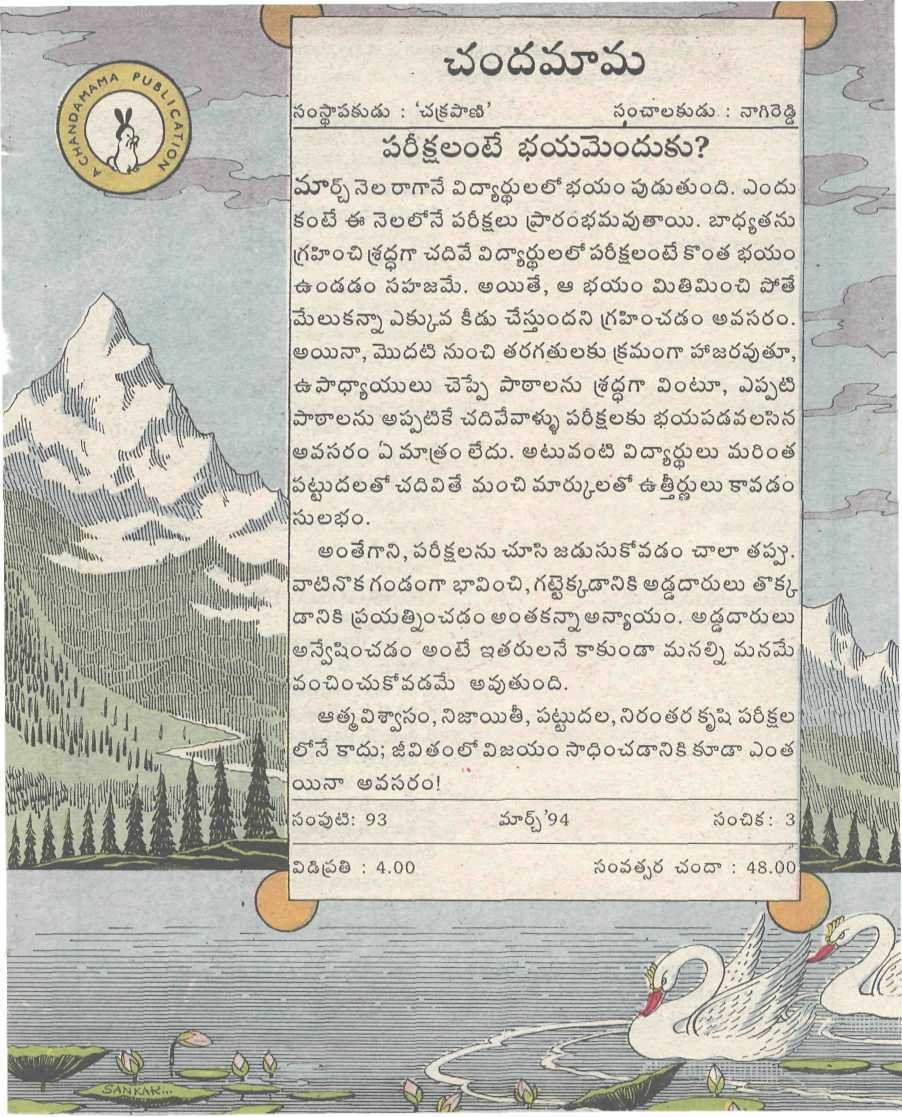 A CHANDAMAMA PUBLICATION
చందమామ
సంస్థాపకుడు : 'చక్రపాణి' సంచాలకుడు : నాగిరెడ్డి
పరీక్షలంటే భయమెందుకు?
మార్చ్ నెల రాగానే విద్యార్థులలో భయం పుడుతుంది. ఎందు
కంటే ఈ నెలలోనే పరీక్షలు ప్రారంభమవుతాయి. బాధ్యతను
గ్రహించి శ్రద్ధగా చదివే విద్యార్థులలో పరీక్షలంటే కొంత భయం
ఉండడం సహజమే. అయితే, ఆ భయం మితిమించి పోతే
మేలుకన్నా ఎక్కువ కీడు చేస్తుందని గ్రహించడం అవసరం.
అయినా, మొదటి నుంచి తరగతులకు క్రమంగా హాజరవుతూ,
ఉపాధ్యాయులు చెప్పే పాఠాలను శ్రద్ధగా వింటూ, ఎప్పటి
పాఠాలను అప్పటికే చదివేవాళ్ళు పరీక్షలకు భయపడవలసిన
అవసరం ఏ మాత్రం లేదు. అటువంటి విద్యార్థులు మరింత
పట్టుదలతో చదివితే మంచి మార్కులతో ఉత్తీర్ణులు కావడం
సులభం.
అంతేగాని, పరీక్షలను చూసి జడుసుకోవడం చాలా తప్పు.
వాటినొక గండంగా భావించి, గట్టెక్కడానికి అడ్డదారులు తొక్క
డానికి ప్రయత్నించడం అంతకన్నా అన్యాయం. అడ్డదారులు
అన్వేషించడం అంటే ఇతరులనే కాకుండా మనల్ని మనమే
వంచించుకోవడమే అవుతుంది.
ఆత్మ విశ్వాసం, నిజాయితీ, పట్టుదల, నిరంతర కృషి పరీక్షల
లోనే కాదు; జీవితంలో విజయం సాధించడానికి కూడా ఎంత
యినా అవసరం!
సంపుటి: 93 మార్చ్ '94 సంచిక: 3
విడిప్రతి : 4.00 సంవత్సర చందా : 48.00
SANKAR...